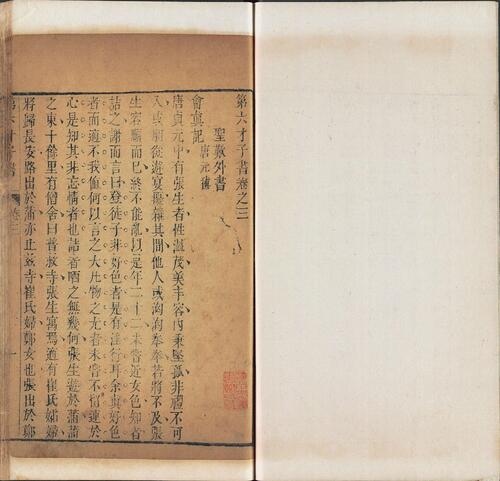 第六才子書卷之三
聖歎外書
會眞記 唐元稹
唐貞元中有張生者性溫茂美丰容內秉堅孤非禮不可
入或朋從遊宴擾雜其間他人或洶洶拳拳若將不及張
生容順而已終不能亂以是年二十二未嘗近女色知者
詰之謝而言曰登徒子非好色者是有淫行耳余眞好色
者而適不我値何以言之大凡物之尤者未嘗不留連於
心是知其非忘情者也詰者哂之無幾何張生遊於蒲蒲
之東十餘里有僧舍曰普救寺張生寓焉適有崔氏孀婦
將歸長安路出於蒲亦止茲寺崔氏婦鄭女也張出於鄭
第六才子書 卷三 一